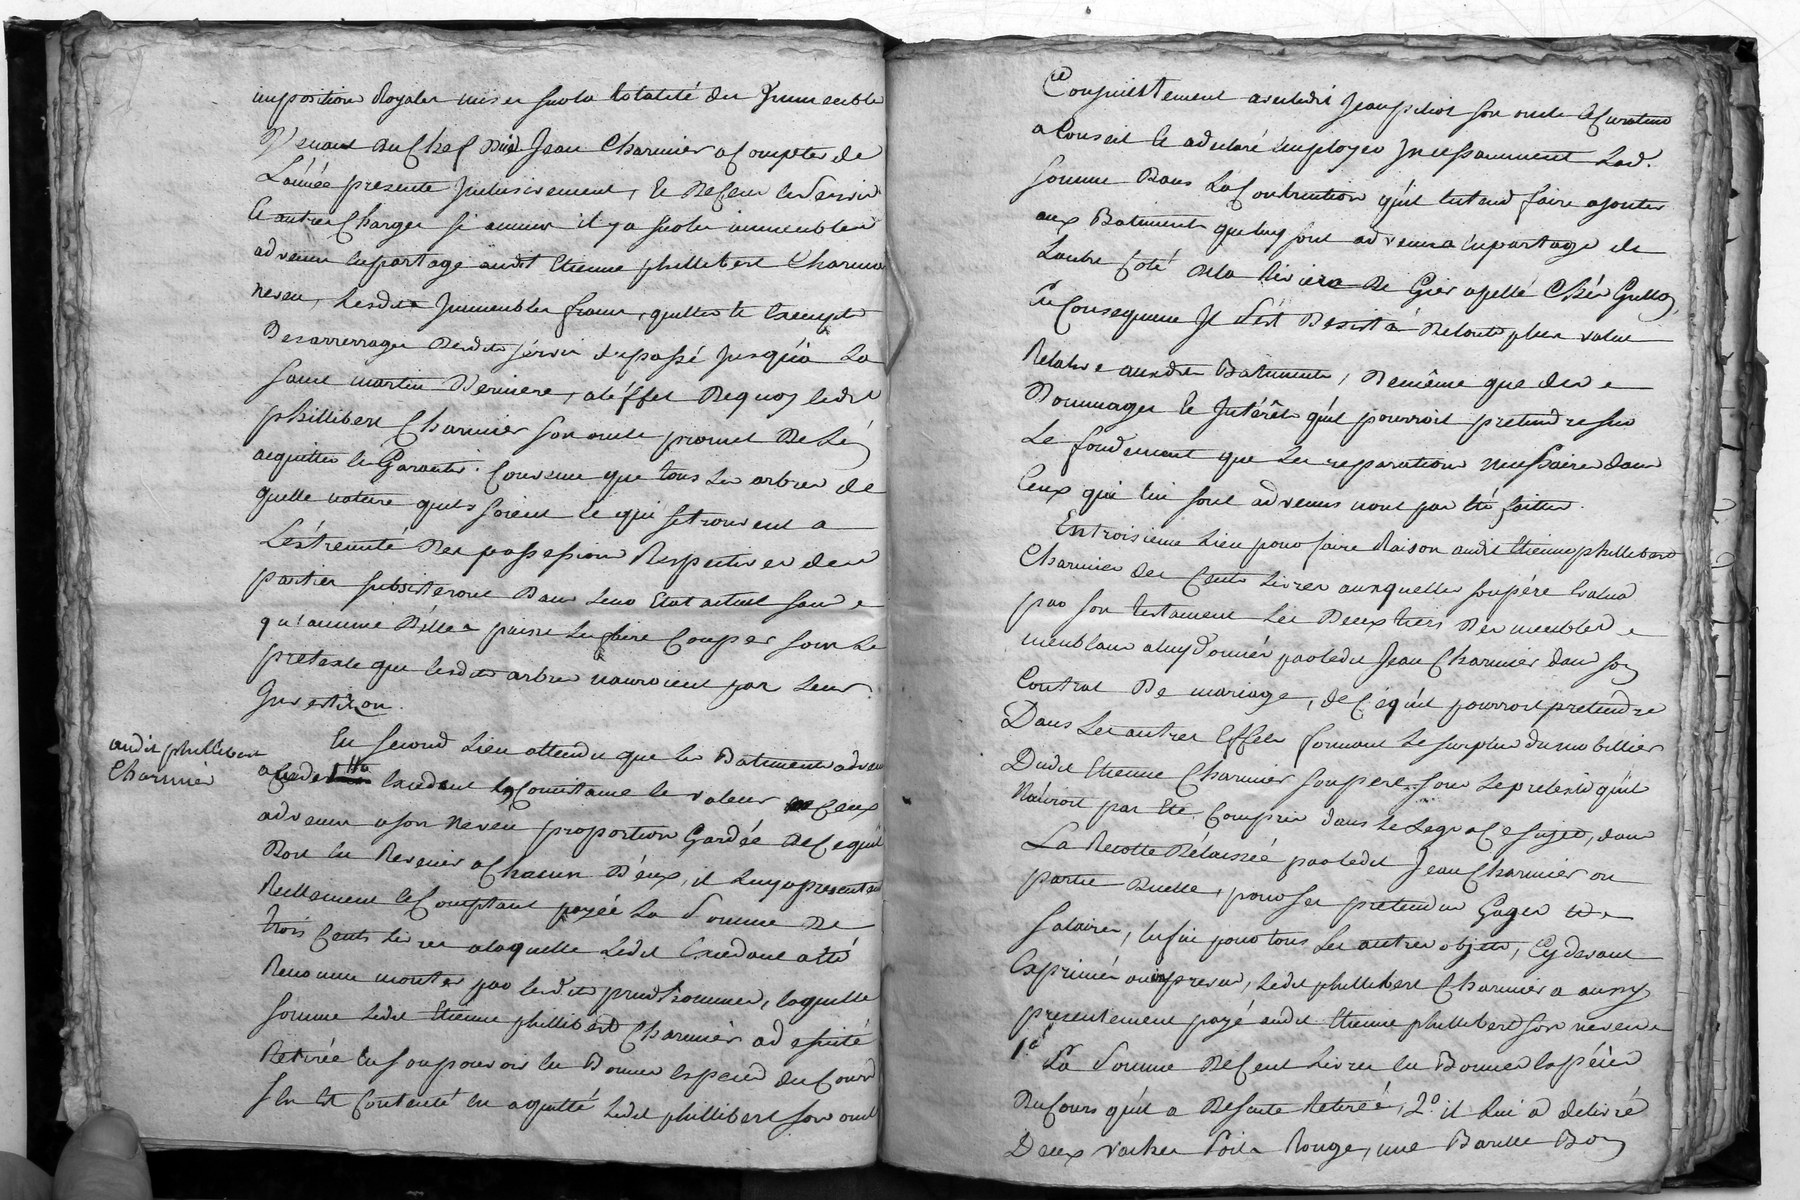 imposition Royaler mis er sur la totalité der Jmmeuble
Venant du Chef dud Jean Charmier a Compter de
L'année presente Jnclusivement, Et de Ceux les Servis
Et autres Charger si aucun il y a sur les immeubles
advenu en partage audit Etienne phillibert Charmier
neveu, lesdits Jmmeubler francs, quitter et Exempts
Des arrerrager Desdits servis du passé Jusqu'à La
saint martin Derniere, a l'éffet Dequoy ledit
phillibert Charmier son oncle promet De Lé
acquitter et Garantir. Convenu que tous Les arbres de
quelle nature quils soient et qui se trouvent a
L'éstremité Des possession Respectives des
partier subsisteront Dans Leur Etat actuel sans
qu'aucune D'éller puisse Les faire Couper sous Le
pretexte que lesdits arbres n'auroient pas Leur
Jnvestizon.
En second Lieu attendu que les Batiments advenu
audit phillibert
Charmier
Excedent En Consistance et valeur Ceux
advenu a son neveu proportion Gardée De Ce qu'il
Doit En Revenir a Chacun D'eux, il luy a presentement
Réellement et Comptant payée La Somme De
trois Cents Livres a laquelle Ledit Excedant a été
Reconnu monter par lesdits prud'hommes, laquelle
somme Ledit Etienne phillibert Charmier a de suité
Retirée En son pouvoir En Bonnes Espeices du Cours
s'en Est Contenté En a quitté Ledit phillibert son oncle
Conjoinctement avec ledit Jean pitiot son oncle Et Curateur
a Conseil Et a declaré Employer Jncessamment Lad.
somme Dans La Contruction qu'il Entend faire ajouter
aux Batiments que luy sont advenus En partage de
L'autre Coté De la Riviere De Gier apellé Chéz Grillo
En Consequence Jl s'est Desisté De toute plus value
Relative auxdits Batiments, De même que des
Dommages Et Jntérêts qu'il pourroit pretendre sur
Le fondement que Les reparations necessaires dans
Ceux qui lui sont advenus n'ont pas Eté faites.
En troisieme Lieu pour faire Raison audit Etienne phillibert
Charmier des Cents Livres auxquelles son pére Evalua
par son testament Les Deux tiers Des meubles
meublans a luy Donnés par ledit Jean Charmier dans son
Contrat De mariage, de Ce qu'il pourroit pretendre
Dans Les autres Effets formant Le surplus du mobillier
Dudit Etienne Charmier son pere sous Le pretexte qu'il
N'auroit pas Eté Compris dans Le Legs a Ce sujet, dans
La Recolte Délaissée par ledit Jean Charmier ou
partie D'icelle, pour ses pretendus Gages Et
salaires, Enfin pour tous Les autres objets, Cy devant
Exprimés, Ledit phillibert Charmier a aussy
presentement payé audit Etienne phillibert son neveu
1°
La Somme De Cent Livres En Bonnes Espéces
Du Cours qu'il a De suite Retirée, 2° il lui a delivré
Deux vaches Poil Rouge, une Baralle Bois